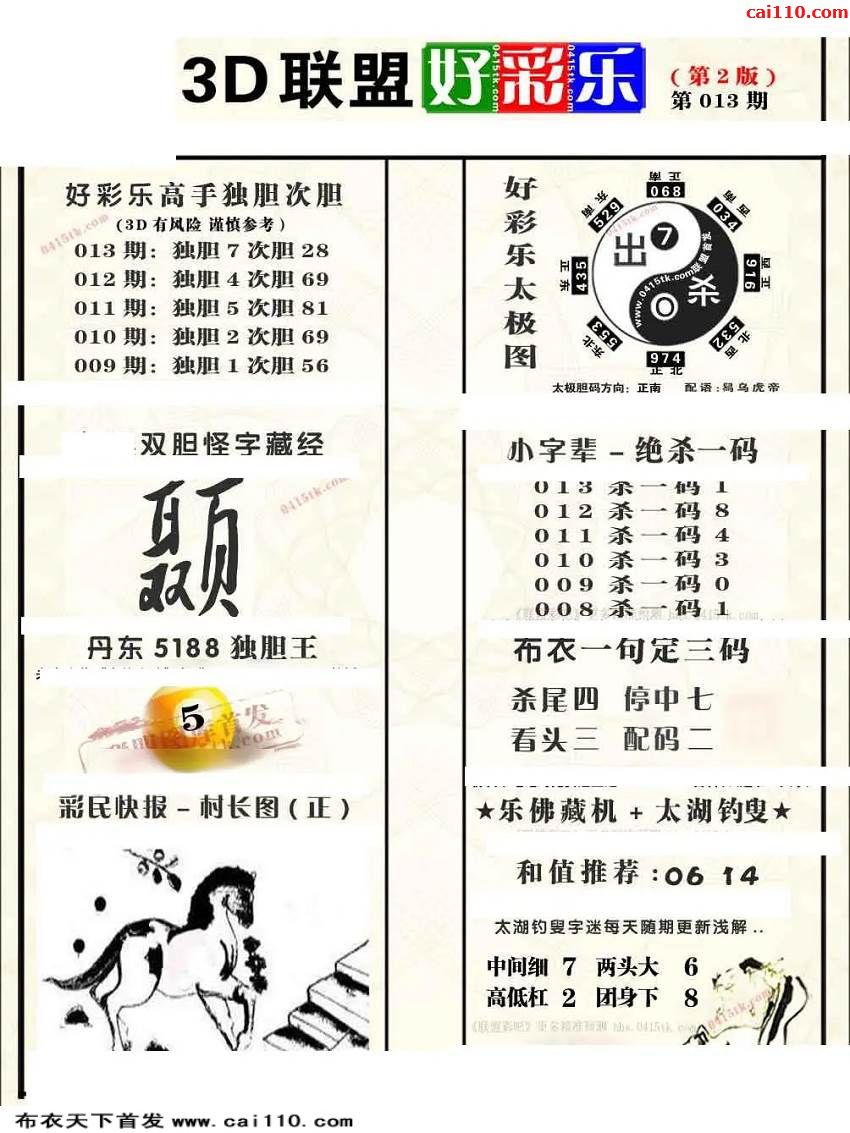 cai110.com
3D联盟 好彩乐
(第2版)
第 013 期
好彩乐高手独胆次胆
(3D有风险 谨慎参考)
013 期: 独胆 7 次胆 28
012 期: 独胆 4 次胆 69
011 期: 独胆 5 次胆 81
010 期: 独胆 2 次胆 69
009 期: 独胆 1 次胆 56
0415tk.com
双胆怪字藏经
0415tk.com
丹东 5188 独胆王
5
彩民快报-村长图(正)
好彩乐太极图
正南 068
西南 034
正西 916
西北 532
正北 974
东北 553
正东 435
东南 529
出 7
杀 0
www.0415tk.com联盟首发
太极胆码方向: 正南 配语: 曷乌虎帝
小字辈-绝杀一码
013 杀一码 1
012 杀一码 8
011 杀一码 4
010 杀一码 3
009 杀一码 0
008 杀一码 1
布衣一句定三码
杀尾四 停中七
看头三 配码二
★乐佛藏机+太湖钓叟★
和值推荐:06 14
太湖钓叟字迷每天随期更新浅解..
中间细 7 两头大 6
高低杠 2 团身下 8
《联盟彩吧》更多精准预测 bbs.0415tk.com
0415tk.com
布衣天下首发 www.cai110.com